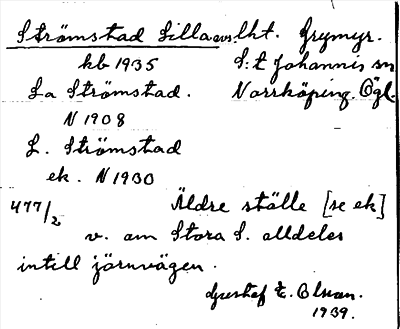 Strömstad Lilla avs. lht. Grymyr.
kb 1935 S:t Johannis sn
La Strömstad. Norrköping. Ögl.
N 1908
L. Strömstad
ek. N 1930
477/2 Äldre ställe [se ek]
v. om Stora S. alldeles
intill järnvägen.
Gustaf E. Olsson.
1939.